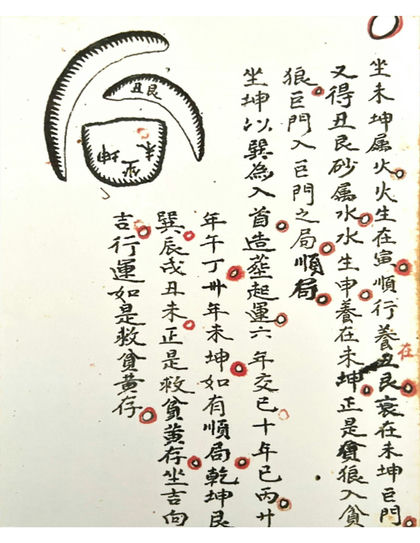 坐未坤属火火生在寅順行養丑艮衰在未坤巨門
在
又得丑艮砂属水水生申養在未坤正是貪狼入貪
狼巨門入巨門之局順局
坐坤以巽為入首造塟起運六年交巳十年巳丙廿
年午丁卅年未坤如有順局乾坤艮
巽辰戌丑未正是救貧黄存坐吉向
吉行運如是救貧黄存
丑艮
坐未坤